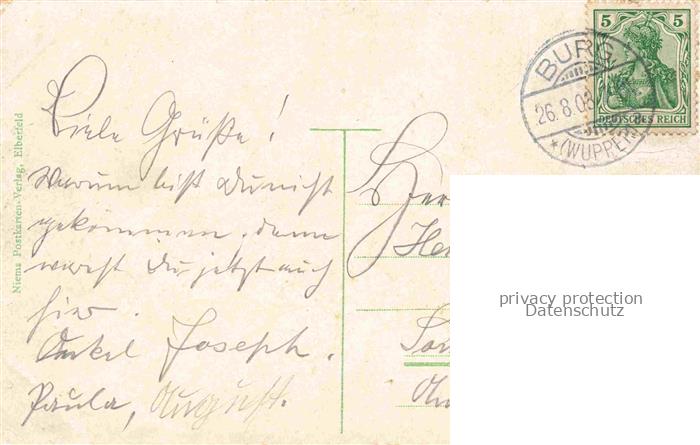 Viele Grüße!
Warum bist Du nicht
gekommen, dann
warst Du jetzt auch
hier.
Onkel Joseph.
Paula, August.
Niema Postkarten-Verlag, Elberfeld
BURG
26.8.08
*(WUPPER
5 5
DEUTSCHES REICH
Her
privacy protection
Datenschutz